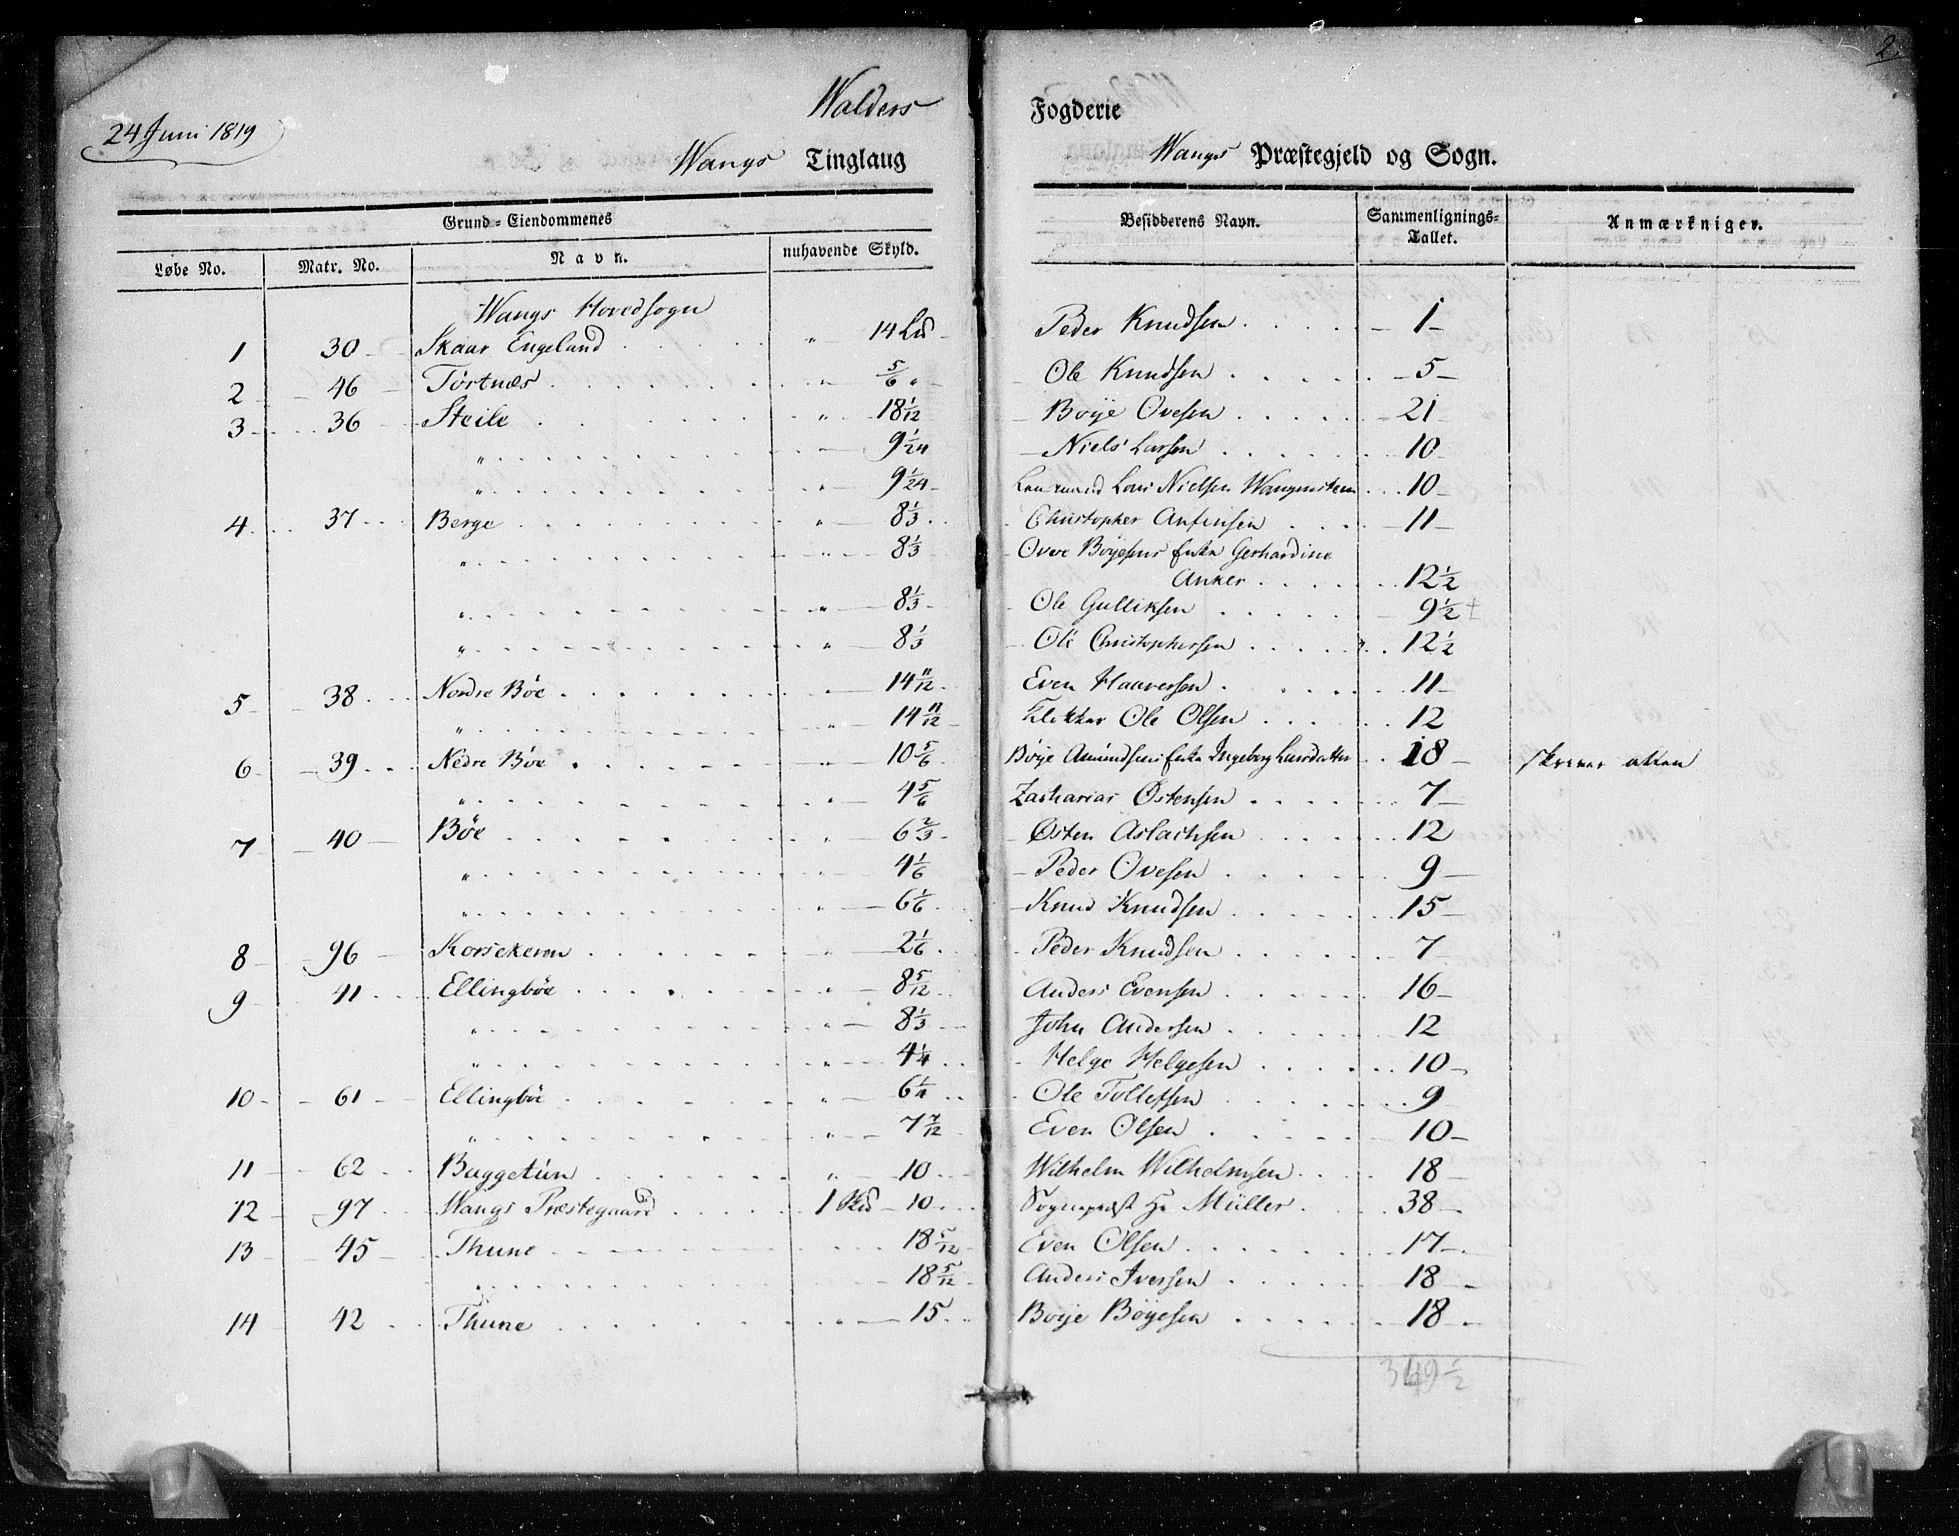 2.
24 Juni 1819
Walders Fogderie
Wangs Tinglaug Wangs Præstegjeld og Sogn.
Grund-Eiendommenes Besidderens Navn. Sammenlignings-Tallet. Anmærkninger.
Løbe No. Matr. No. Navn. nuhavende Skyld.
Wangs Hovedsogn
1 30 Skaar Engeland " 14 Ld Peder Knudsen 1
2 46 Tørtnæs " 5/6 " Ole Knudsen 5
3 36 Steile " 18 1/12 Boye Ovesen 21
" " 9 1/24 Niels Larsen 10
" " 9 1/24 Lars Nielsen Wangensteen 10
4 37 Berge " 8 1/3 Christopher Anfinsen 11
" " 8 1/3 Ove Bøyesens Enke Gerhardine
Anker 12 1/2
" " 8 1/3 Ole Gulliksen 9 1/2
" " 8 1/3 Ole Christophersen 12 1/2
5 38 Nordre Bøe " 14 11/12 Even Haaversen 11
" " 14 11/12 Klokker Ole Olsen 12
6 39 Nedre Bøe " 10 5/6 Bøye Amundsens Enke Ingeborg Larsdatter 18 skriver atten
" " 4 5/6 Zacharias Østensen 7
7 40 Bøe " 6 2/3 Østen Aslachsen 12
" " 4 1/6 Peder Ovesen 9
" " 6 1/6 Knud Knudsen 15
8 96 Korsekeren " 2 1/6 Peder Knudsen 7
9 41 Ellingbøe " 8 5/12 Anders Evensen 16
" " 8 1/3 John Andersen 12
" " 4 1/4 Helge Helgesen 10
10 61 Ellingbøe " 6 1/4 Ole Tollefsen 9
" " 7 7/12 Even Olsen 10
11 62 Baggetun " 10 Wilhelm Wilhelmsen 18
12 97 Wangs Præstegaard 1 Skd 10 Sognepræst Hr Müller 38
13 45 Thune 18 5/12 Even Olsen 17
" 18 5/12 Anders Iversen 18
14 42 Thune " 15 Boye Bøyesen 18
349 1/2